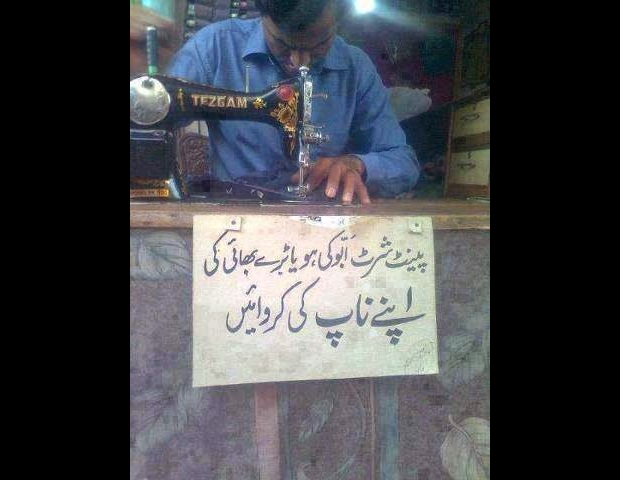 TEZGAM
پینٹ شرٹ ابّو کی ہو یا بڑے بھائی کی
اپنے ناپ کی کروائیں